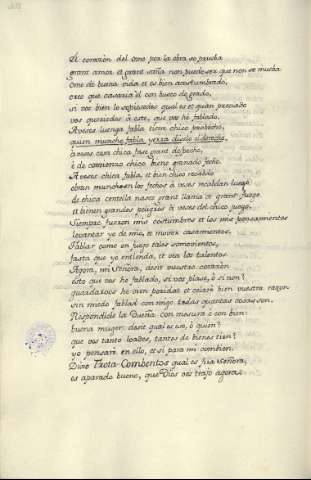 El corazón del ome por la obra se prueba
grant amor et grant saña non puede ser que non se mueba
Ome de buena vida et es bien acostumbrado,
creo que casaría él con busco de grado,
si vos bien lo sopiesedes qual es et quan preciado
vos querriedes á este, que vos he fablado.
A veses luenga fabla tiene chico probecho,
quien mucho fabla yerra dicelo el derecho,
á veses cosa chica fase grant despecho,
é de comienzo chico biene granado fecho.
A veses chica fabla, et bien chico recabdo
obran mucho en los fechos á veses recabdan luego
de chica centella nasce grant llama et grant fuego
et bienen grandes peleas á veses del chico juego.
Siempre fueron mis costumbres et los mis pensamientos
levantar yo de mio, et mover casamientos.
Fablar como en juego tales somovientos,
fasta que yo entienda, et vea los talentos
Agora, mi Señora, desit vuestro corazón
esto que vos he fablado, si vos plase, ó si non?
guardarvos he vien poridat et celaré bien vuestra razon
sin miedo fablad con migo todas quantas cosas son.
Respondióle la Dueña con mesura é con bien
buena muger, desit qual es ese, ó quien?
que vos tanto loades, tantos de bienes tien?
yo pensaré en ello, et si para mi convien.
Dixo Trota-Combentos qual es fija Señora,
es aparado bueno, que Dios vos trajo agora: